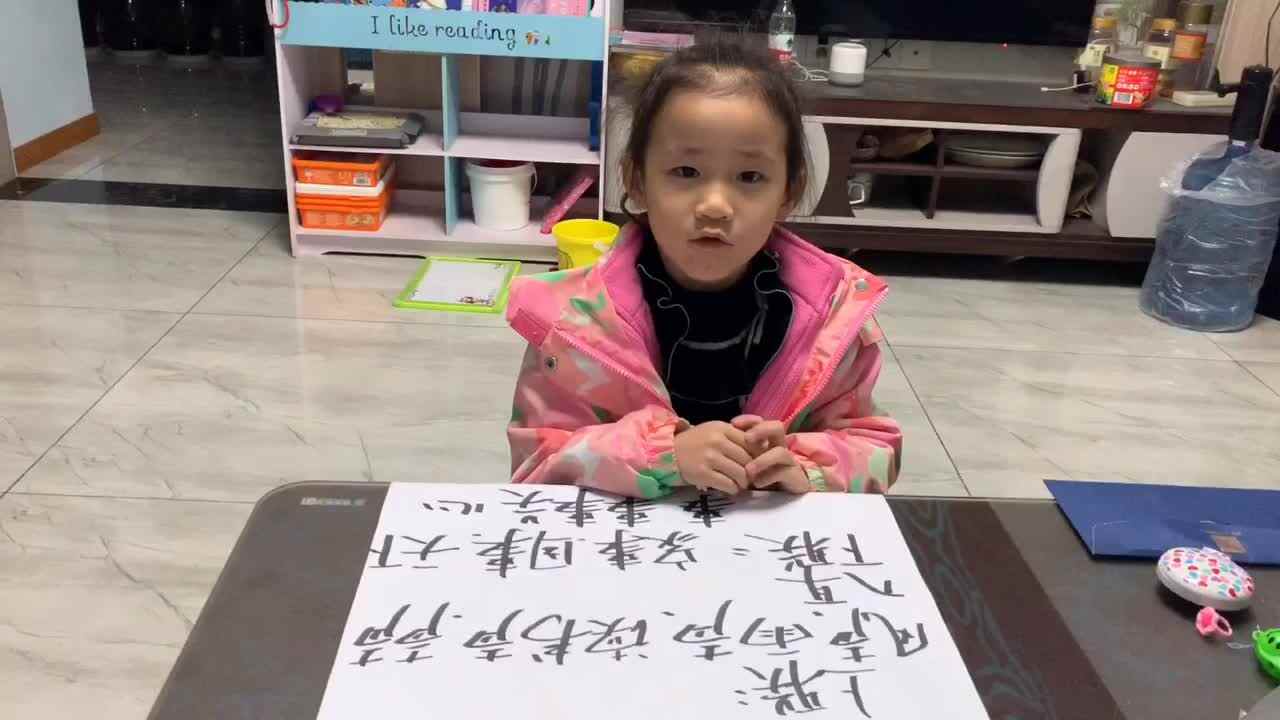 I like reading
上联：
风声、雨声、读书声、声声
入耳
下联：家事、国事、天下
事、事事关心